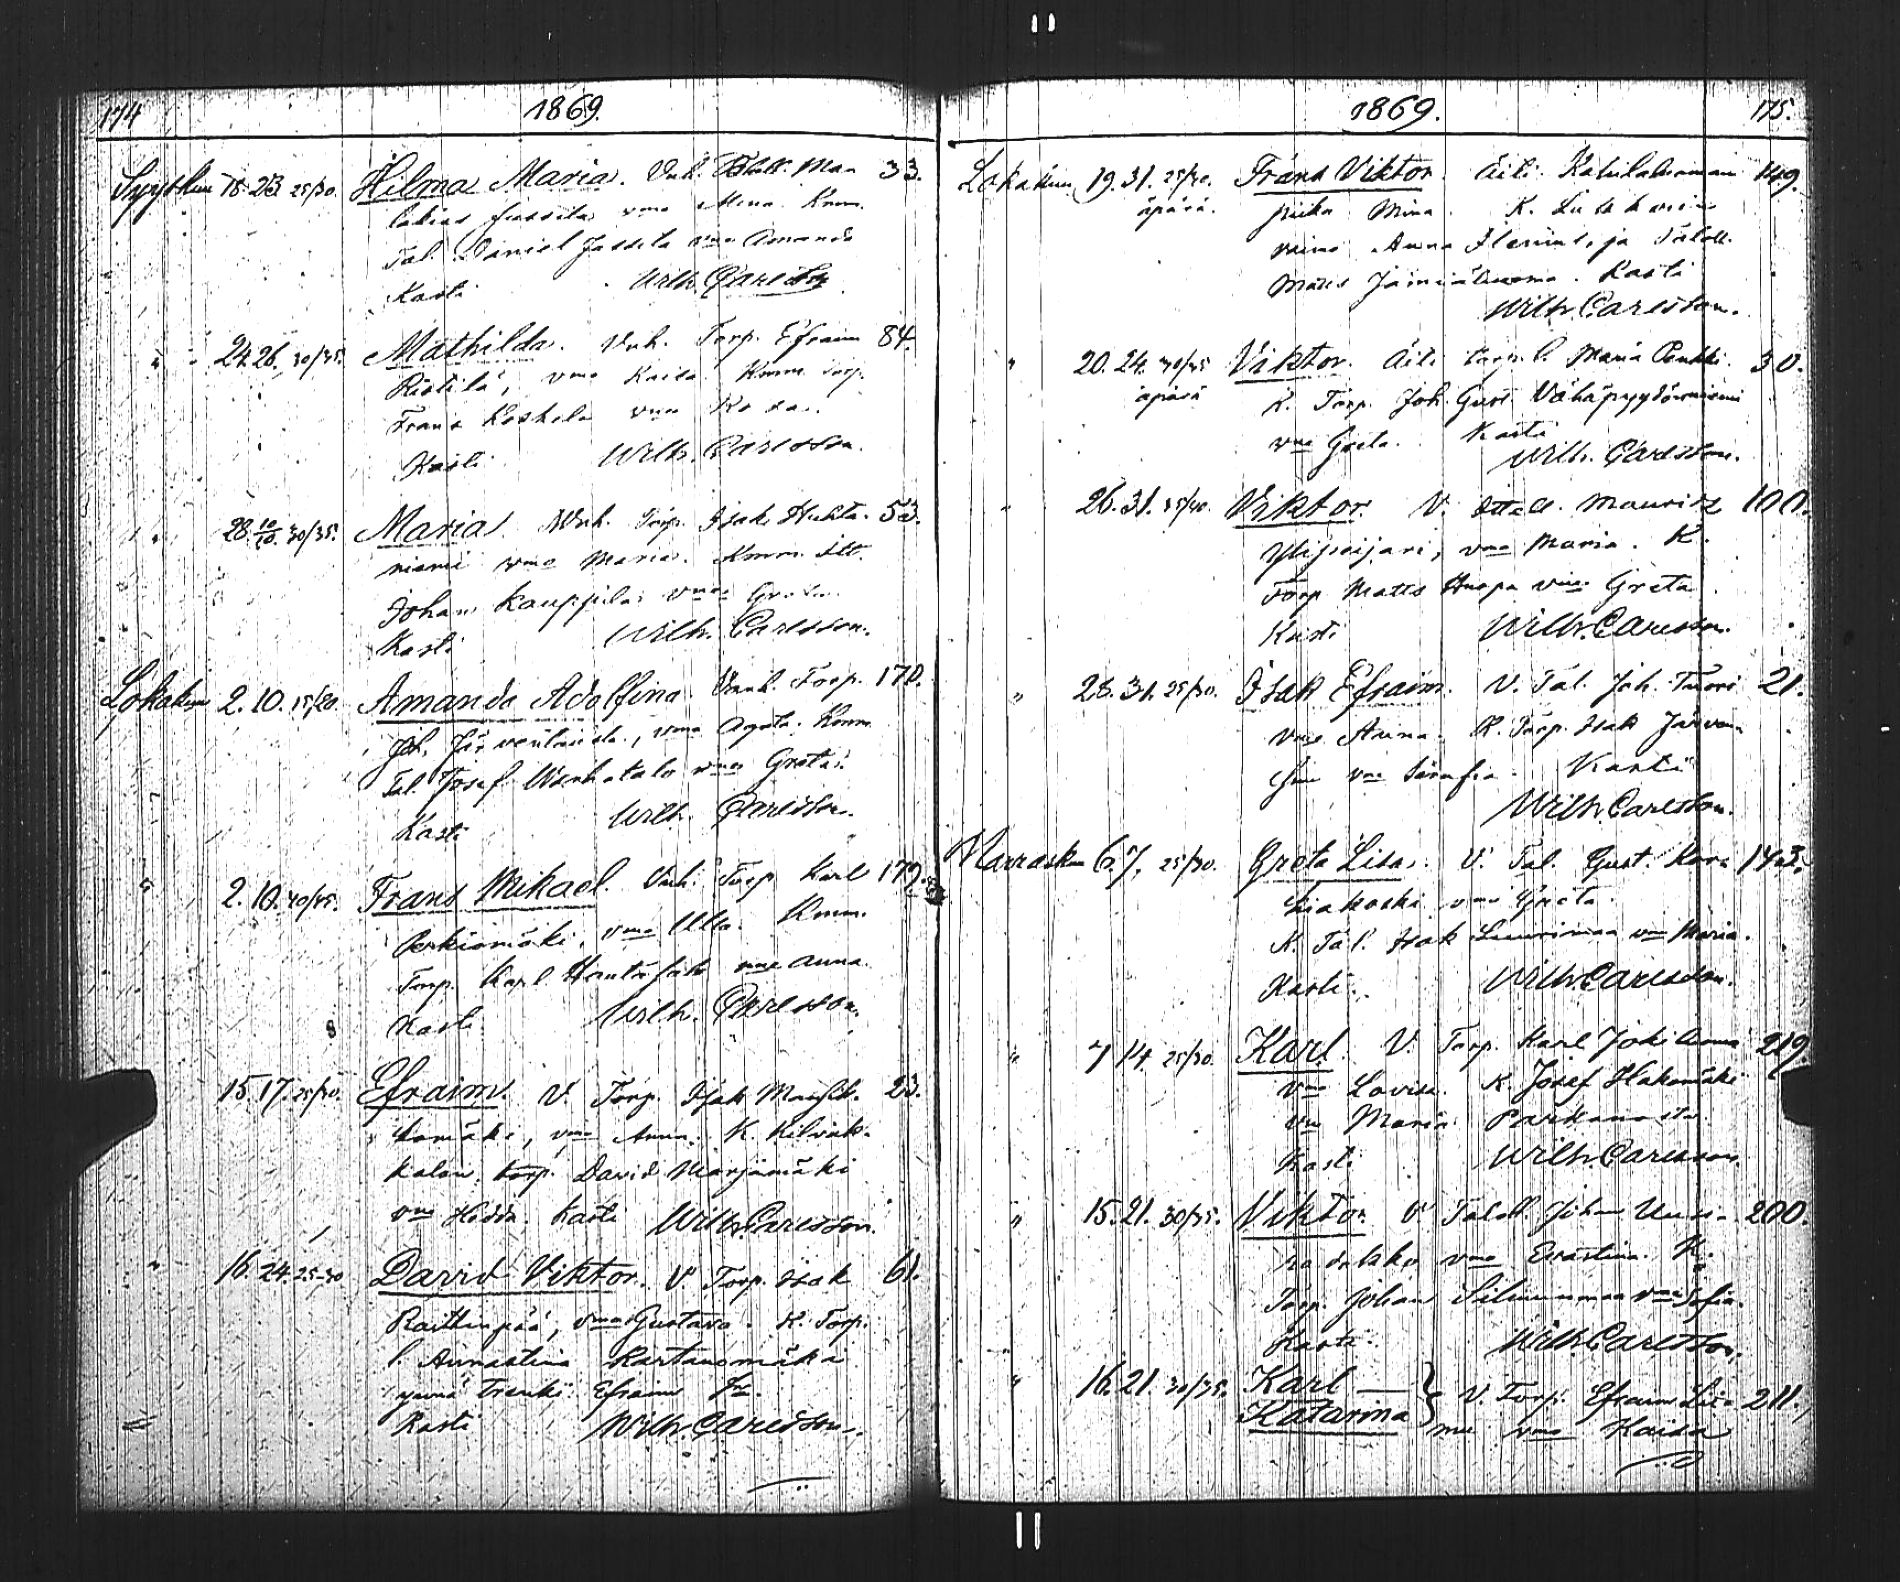 174 1869.
Syyskuu 18. 23 25/30. Hilma Maria. Vnh. Talll. Maa 33.
lakias Jussila vmo Mina Kmm.
Tal. Daniel Jussila vmo Amanda
Kasti Wilh. Carlsson
" 24. 26. 30/35. Mathilda. Vnh. Torp. Efraim 84.
Ristilä, vmo Kaisa Kmm. Torp.
Frans Koskela vmo Kaisa.
Kasti Wilh. Carlsson.
" 28. 10/10. 30/35. Maria. Vnh. Torp. Isak Huhta- 53.
niemi vmo Maria. Kmm. Itt.
Johan Kauppila vmo Greta.
Kasti Wilh. Carlsson.
Lokakuu 2. 10. 15/20. Amanda Adolfina. Vanh. Torp. 170.
Joh. Järventausta, vmo Agata. Kmm.
Tal. Josef Wanhatalo vmo Greta.
Kasti Wilh. Carlsson.
" 2. 10. 40/45. Frans Mikael. Vnh. Torp. Karl 179.
Perkiömäki, vmo Ulla. Kmm.
Torp. Karl Hautajoki vmo Anna
Kasti Wilh. Carlsson.
15. 17. 25/30. Efraim. V. Torp. Isak 23.
komäki, vmo Anna. K. Kilvak-
kalan torp. David Marjamäki
vmo Hedda. Kasti Wilh. Carlsson.
" 16. 24. 25-30 David Viktor. V. Torp. Isak 61.
Raittinpää, vmo Gustava. K. Torp.
l. Annastina Kartanomäki
ynnä trenki Efraim
Kasti Wilh. Carlsson.
1869. 175.
Lokakuu 19. 31. 25/30. Frans Viktor. Äiti 149.
äpärä. piika Mina. K.
vaimo Anna ja Taloll.
Matts Kasti
Wilh. Carlsson.
" 20. 24. 30/35 Viktor. Äiti torp. l. Maria Penkki. 30.
äpärä K. Torp. Joh. Gust. Vähäpyydönniemi
vmo Greta. Kasti
Wilh. Carlsson.
" 26. 31. 35/40. Viktor. V. Mauritz 100.
Ylipeijari, vmo Maria. K.
Torp Matts Huopa vmo Greta
Kasti Wilh. Carlsson.
" 28. 31. 25/30. Isak Efraim. V. Tal. Joh. Tuori 21.
vmo Anna. K. Torp. Isak Järven-
vmo Serafia. Kasti
Wilh. Carlsson.
Marraskuu 6. 7. 25/30. Greta Lisa. V. Tal. Gust. Kora- 143.
siakoski vmo Greta.
K. Tal. Isak Luurimaa vmo Maria.
Kasti. Wilh. Carlsson.
" 7 14. 25/30. Karl. V. Torp. Karl Jokiluoma 219
vmo Lovisa. K. Josef Hakomäki
vmo Maria Parkanosta.
Kasti Wilh. Carlsson.
" 15. 21. 30/35. Viktor. V. Taloll. Johan Uusi- 200.
vmo Evastina. K.
Torp. Johan Silmunmaa vmo Sofia.
Kasti. Wilh. Carlsson.
" 16. 21. 30/35. Karl — } V. Torp. Efraim 211.
Katarina vmo Kaisa